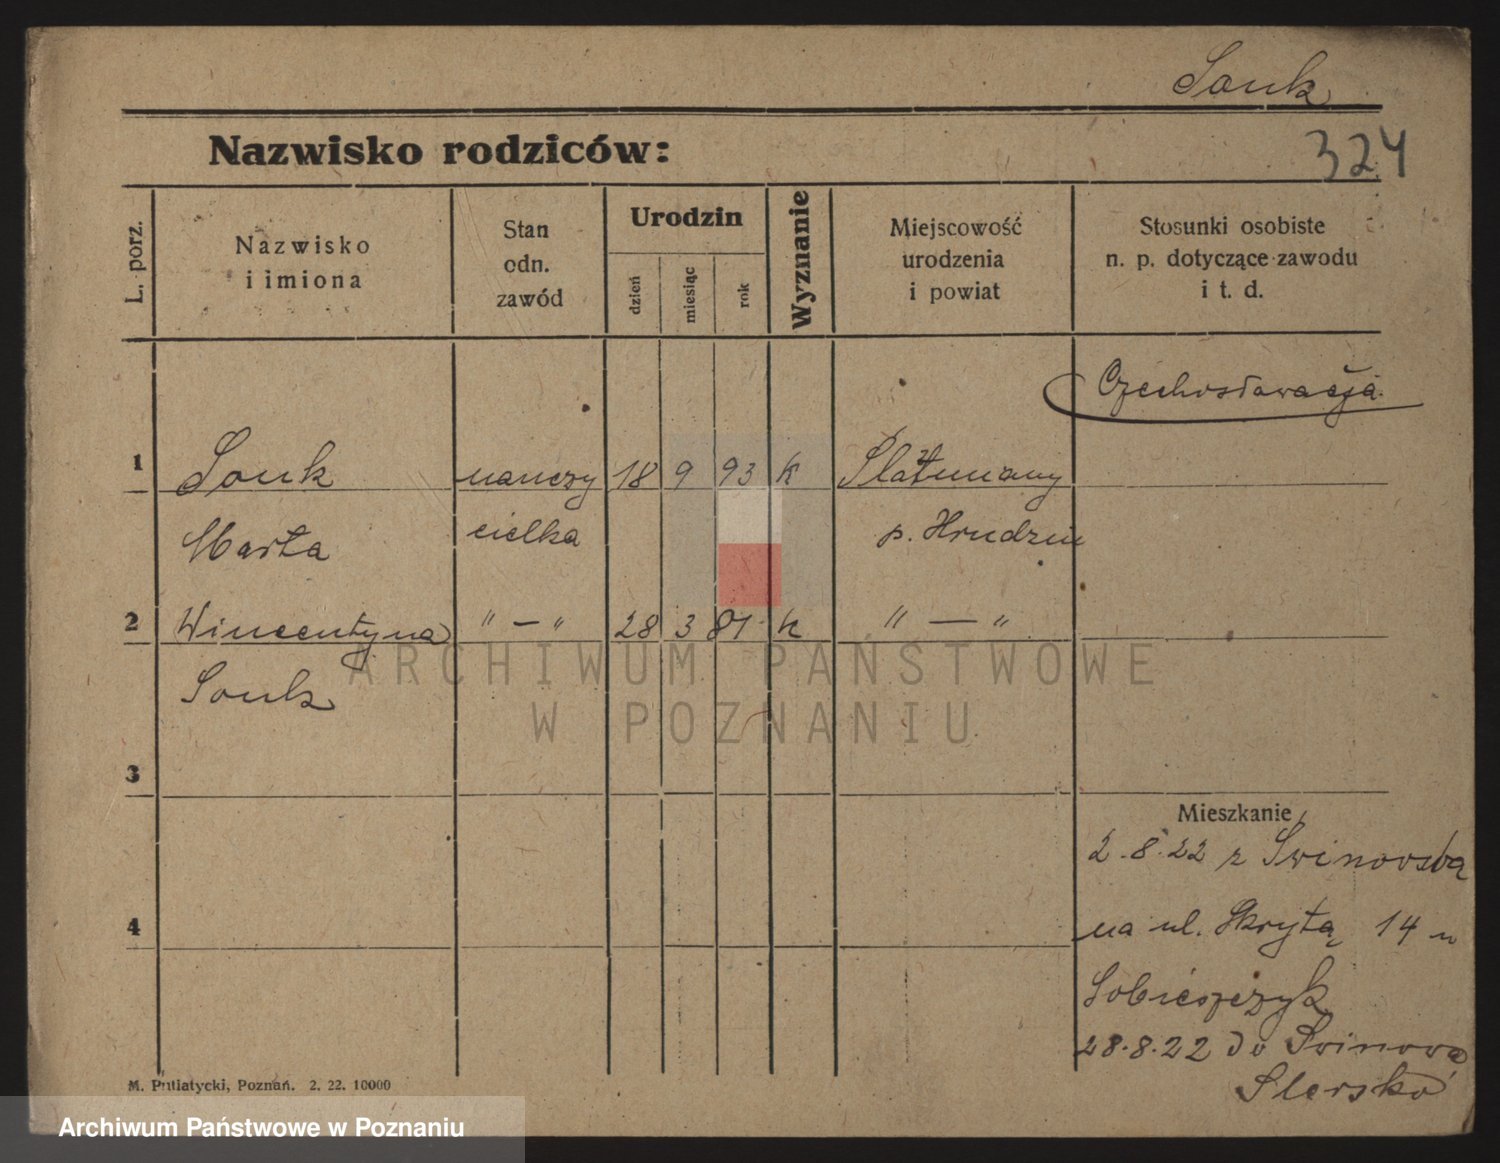 Souk
324
Nazwisko rodziców:
L. porz.
Nazwisko
i imiona
Stan
odn.
zawód
Urodzin
dzień
miesiąc
rok
Wyznanie
Miejscowość
urodzenia
i powiat
Stosunki osobiste
n. p. dotyczące zawodu
i t. d.
Czechosłowacja
1 Souk nauczy 18 9 93 k
Marta cielka p. Hrudzin
2 Wincentyna " — " 28 3 81 k " — "
Souk
3
Mieszkanie
2.8.22 z
4 na ul. Skrytą 14 u
Sobieszczyk
28.8.22 do
M. Putiatycki, Poznań. 2. 22. 10000
ARCHIWUM PAŃSTWOWE
W POZNANIU
Archiwum Państwowe w Poznaniu